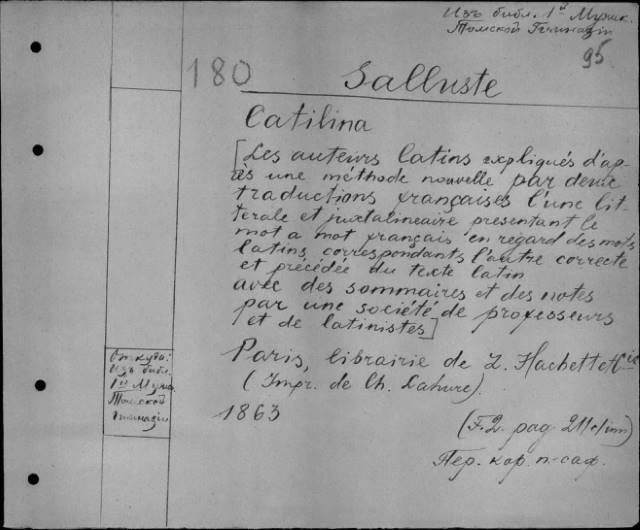 Изъ библ. 1й Мужск.
Томской Гимназіи
95
180
Salluste
Catilina
[Les auteurs latins expliqués d'ap-
rès une méthode nouvelle par deux
traductions françaises l'une lit-
térale et juxtalineaire présentant le
mot a mot français en regard des mots
latins correspondants l'autre correcte
et précédée du texte latin
avec des sommaires et des notes
par une société de professeurs
et de latinistes]
Paris, librairie de L. Hachette et Cie
(Impr. de Ch. Lahure).
1863
Откуда:
Изъ библ.
1й Муж.
Томской
гимназіи
(F.2. pag. 211
Пер. кор. п-саф.